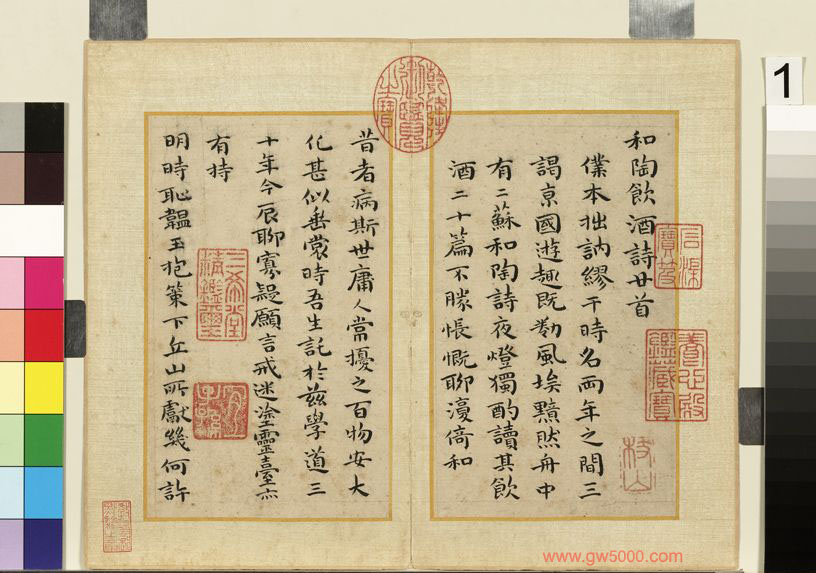 和陶飲酒詩廿首
僕本拙訥繆干時名兩年之間三
謁京國遊趣既勌風埃黯然舟中
有二蘇和陶詩夜燈獨酌讀其飲
酒二十篇不勝悵慨聊復倚和
昔者病斯世庸人常擾之百物安大
化甚似垂裳時吾生託於茲學道三
十年今辰聊寡疑願言戒迷塗靈臺亦
有持
明時恥韞玉抱策下丘山所獻幾何許
石渠寶笈
養心殿鑑藏寶
枝山
乾隆御覽之寶
三希堂精鑑璽
1
www.gw5000.com